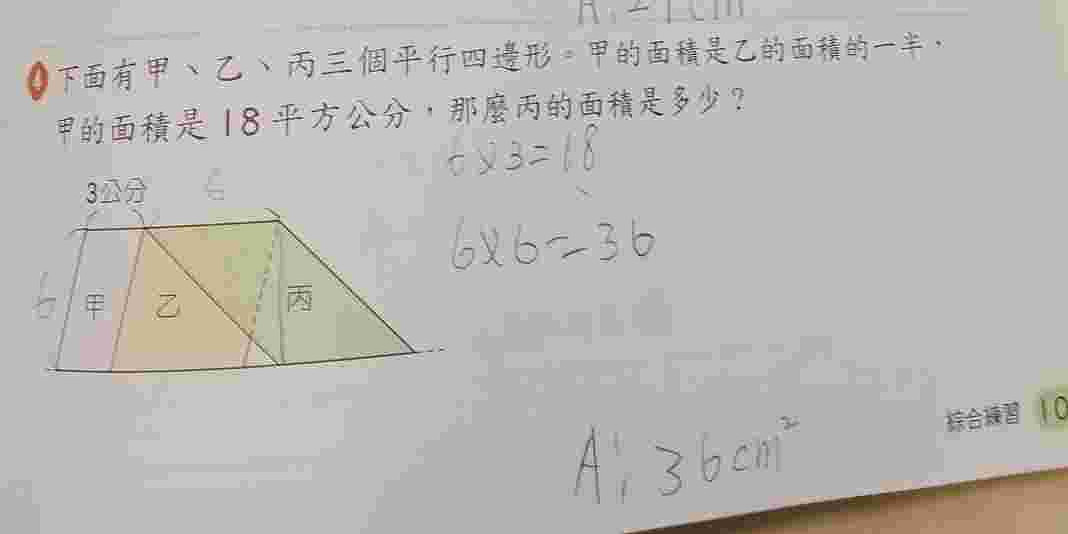 下面有甲、乙、丙三個平行四邊形。甲的面積是乙的面積的一半，
甲的面積是18平方公分，那麼丙的面積是多少？
6x3=18
3公分 6
6x6=36
6 甲 乙 丙
綜合練習 10
A: 36cm²